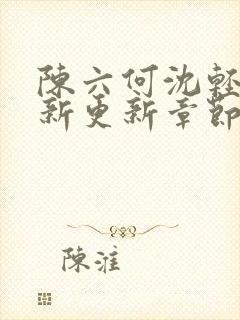 陳六何沈輕
新更新章節
陳淮